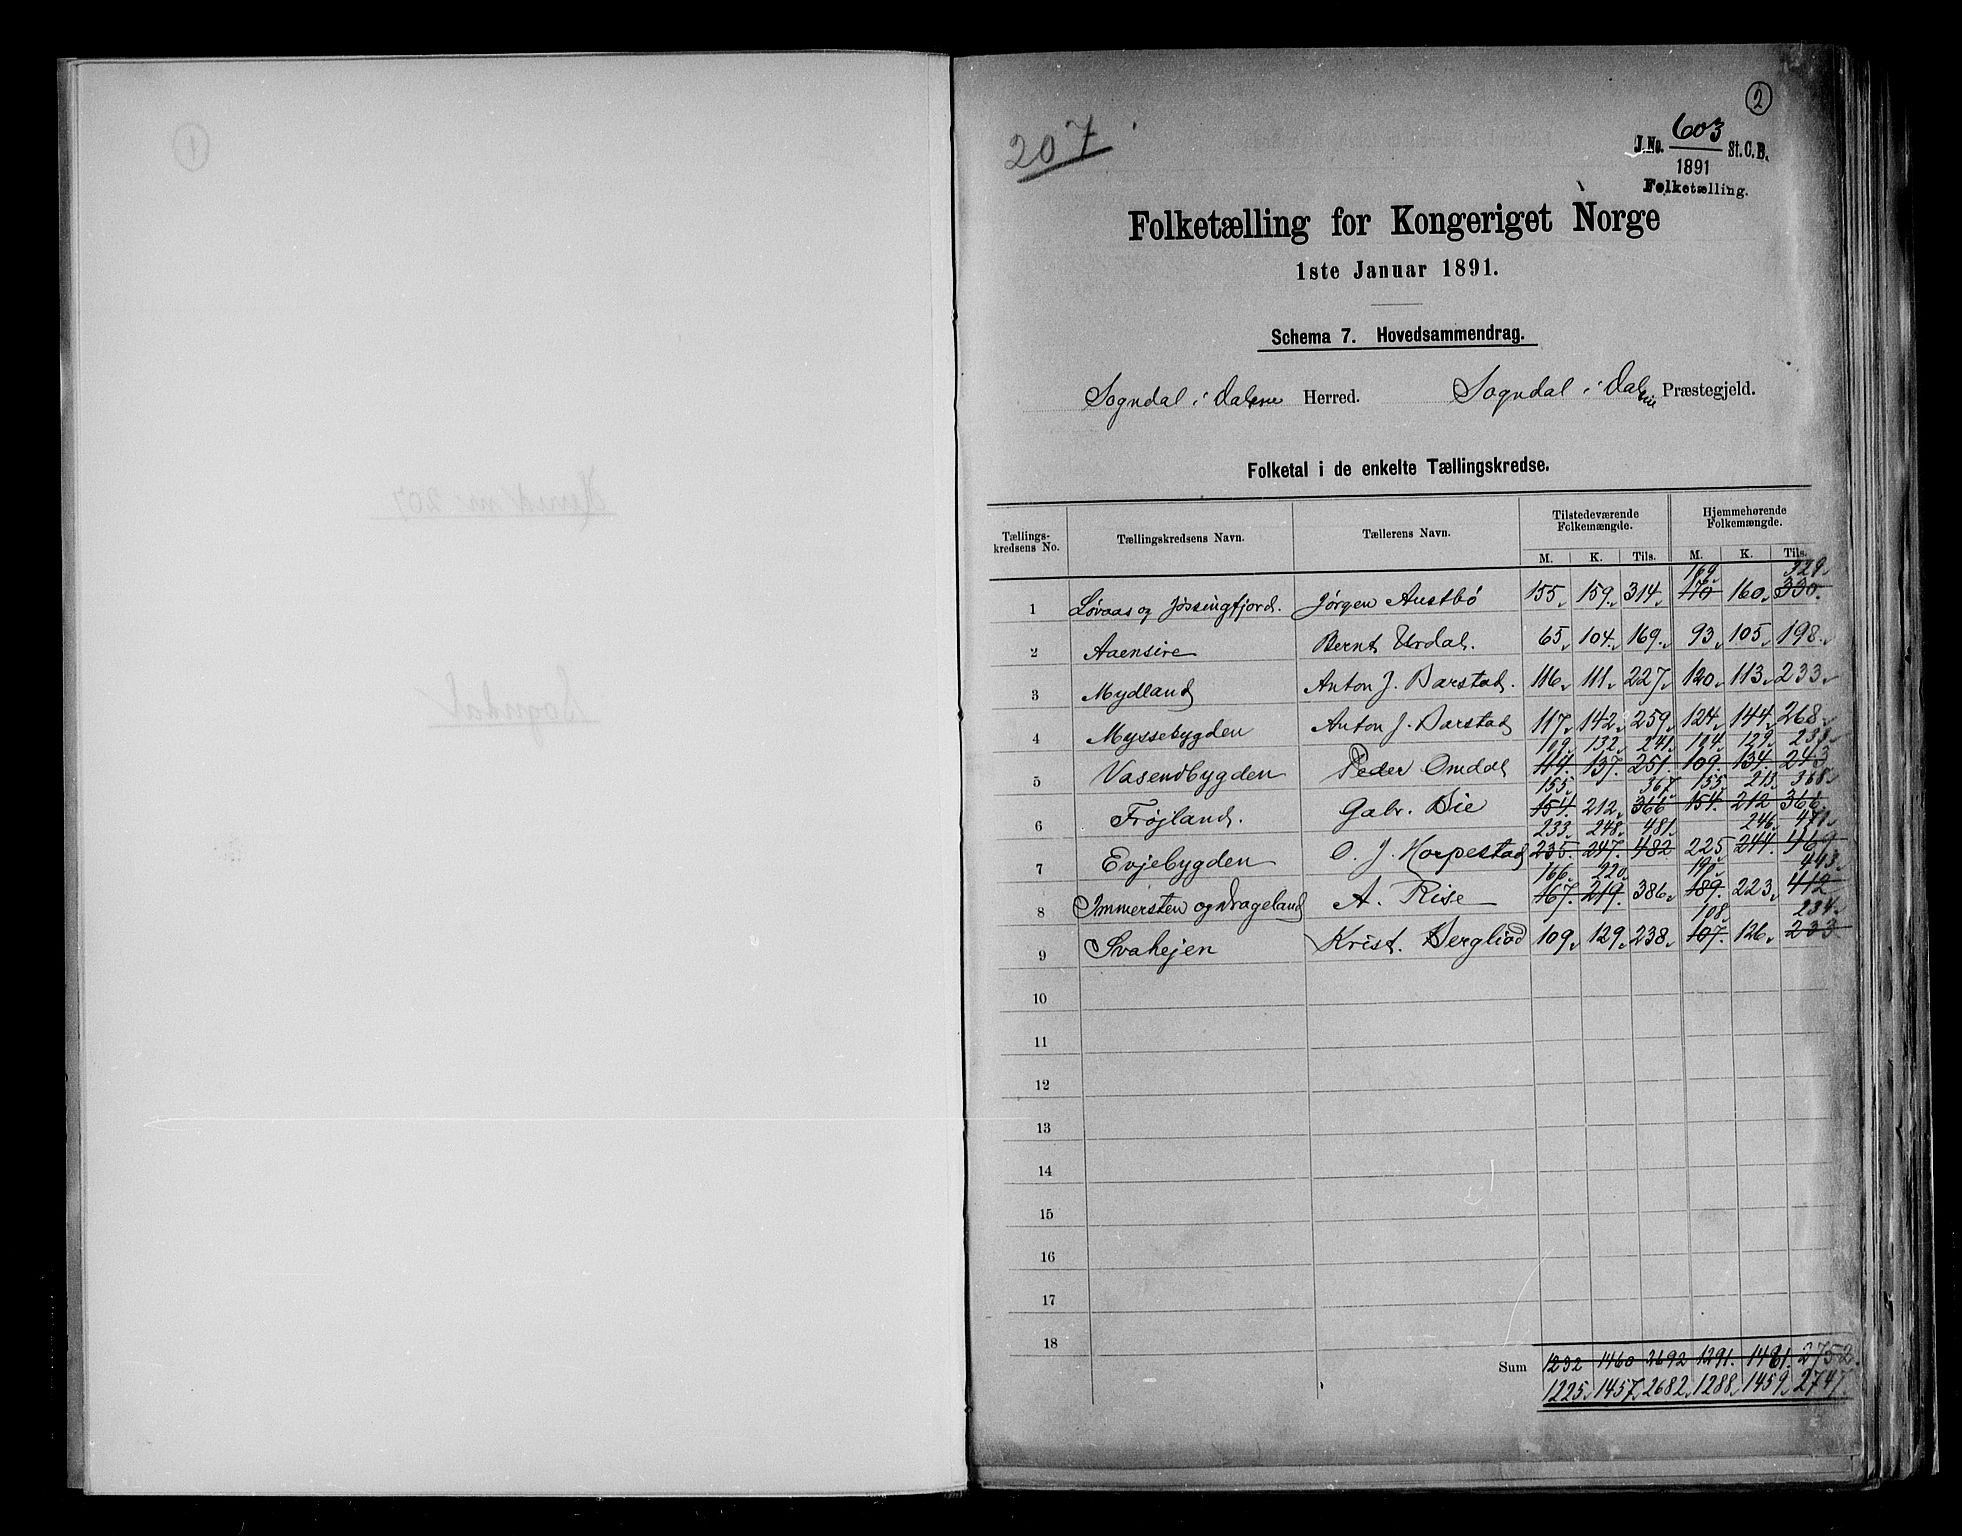 2
207
J. No. 603 St. C. B.
1891
Folketælling.
Folketælling for Kongeriget Norge
1ste Januar 1891.
Schema 7. Hovedsammendrag.
Sogndal i Dalerne Herred. Sogndal i Dalerne Præstegjeld.
Folketal i de enkelte Tællingskredse.
Tællings-kredsens No. Tællingskredsens Navn. Tællerens Navn. Tilstedeværende Folkemængde. Hjemmehørende Folkemængde.
M. K. Tils. M. K. Tils.
169. 329.
1 Løvaas og Jøssingfjord. Jørgen Austbø 155. 159. 314. 170 160. 330.
2 Aaensire Bernt Urdal. 65. 104. 169. 93. 105. 198.
3 Mydland Anton J. Barstad. 116. 111. 227. 120. 113. 233.
4 Myssebygden Anton J. Barstad 117. 142. 259. 124. 144. 268.
109. 132. 241. 104. 129. 233.
5 Vasendbygden Peder Omdal 114. 137. 251. 109. 134. 243
155. 367. 155. 213. 368.
6 Frøjland. Gabr. Bie 154. 212. 366 154. 212 366.
233. 248. 481. 246. 471.
7 Evjebygden O. J. Horpestad 235. 247. 482 225. 244. 469
166. 220. 190. 413.
8 Immersten og Drageland A. Rise 167. 219. 386. 189. 223. 412
108. 234.
9 Svahejen Krist. Bergliod 109. 129. 238. 107. 126. 233.
10
11
12
13
14
15
16
17
18
Sum 1232 1460 2692 1291. 1461. 2752.
1225. 1457. 2682. 1288. 1459. 2747.